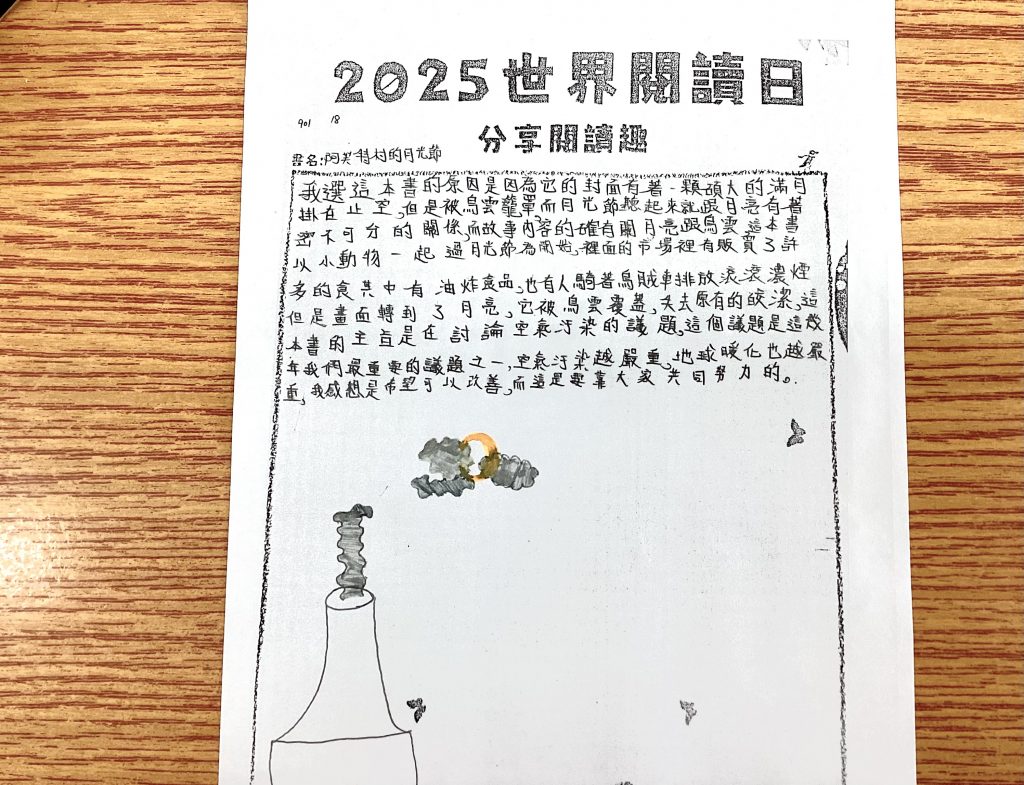 2025世界閱讀日
901 18
分享閱讀趣
書名:阿米特村的月光節
我選這本書的原因是因為它的封面有著一顆碩大的滿月
掛在上空,但是被烏雲籠罩而月光節聽起來就跟月亮有著
密不可分的關係,而故事內容的確有關月亮跟烏雲這本書
以小動物一起過月光節為開始,裡面的市場裡有販賣了許
多的食其中有油炸食品,也有人騎著烏賊車排放滾滾濃煙
但是畫面轉到了月亮,它被烏雲覆蓋,失去原有的皎潔,這
本書的主旨是在討論空氣汙染的議題,這個議題是這幾
年我們最重要的議題之一,空氣汙染越嚴重,地球暖化也越嚴
重,我感想是希望可以改善,而這是要靠大家共同努力的。